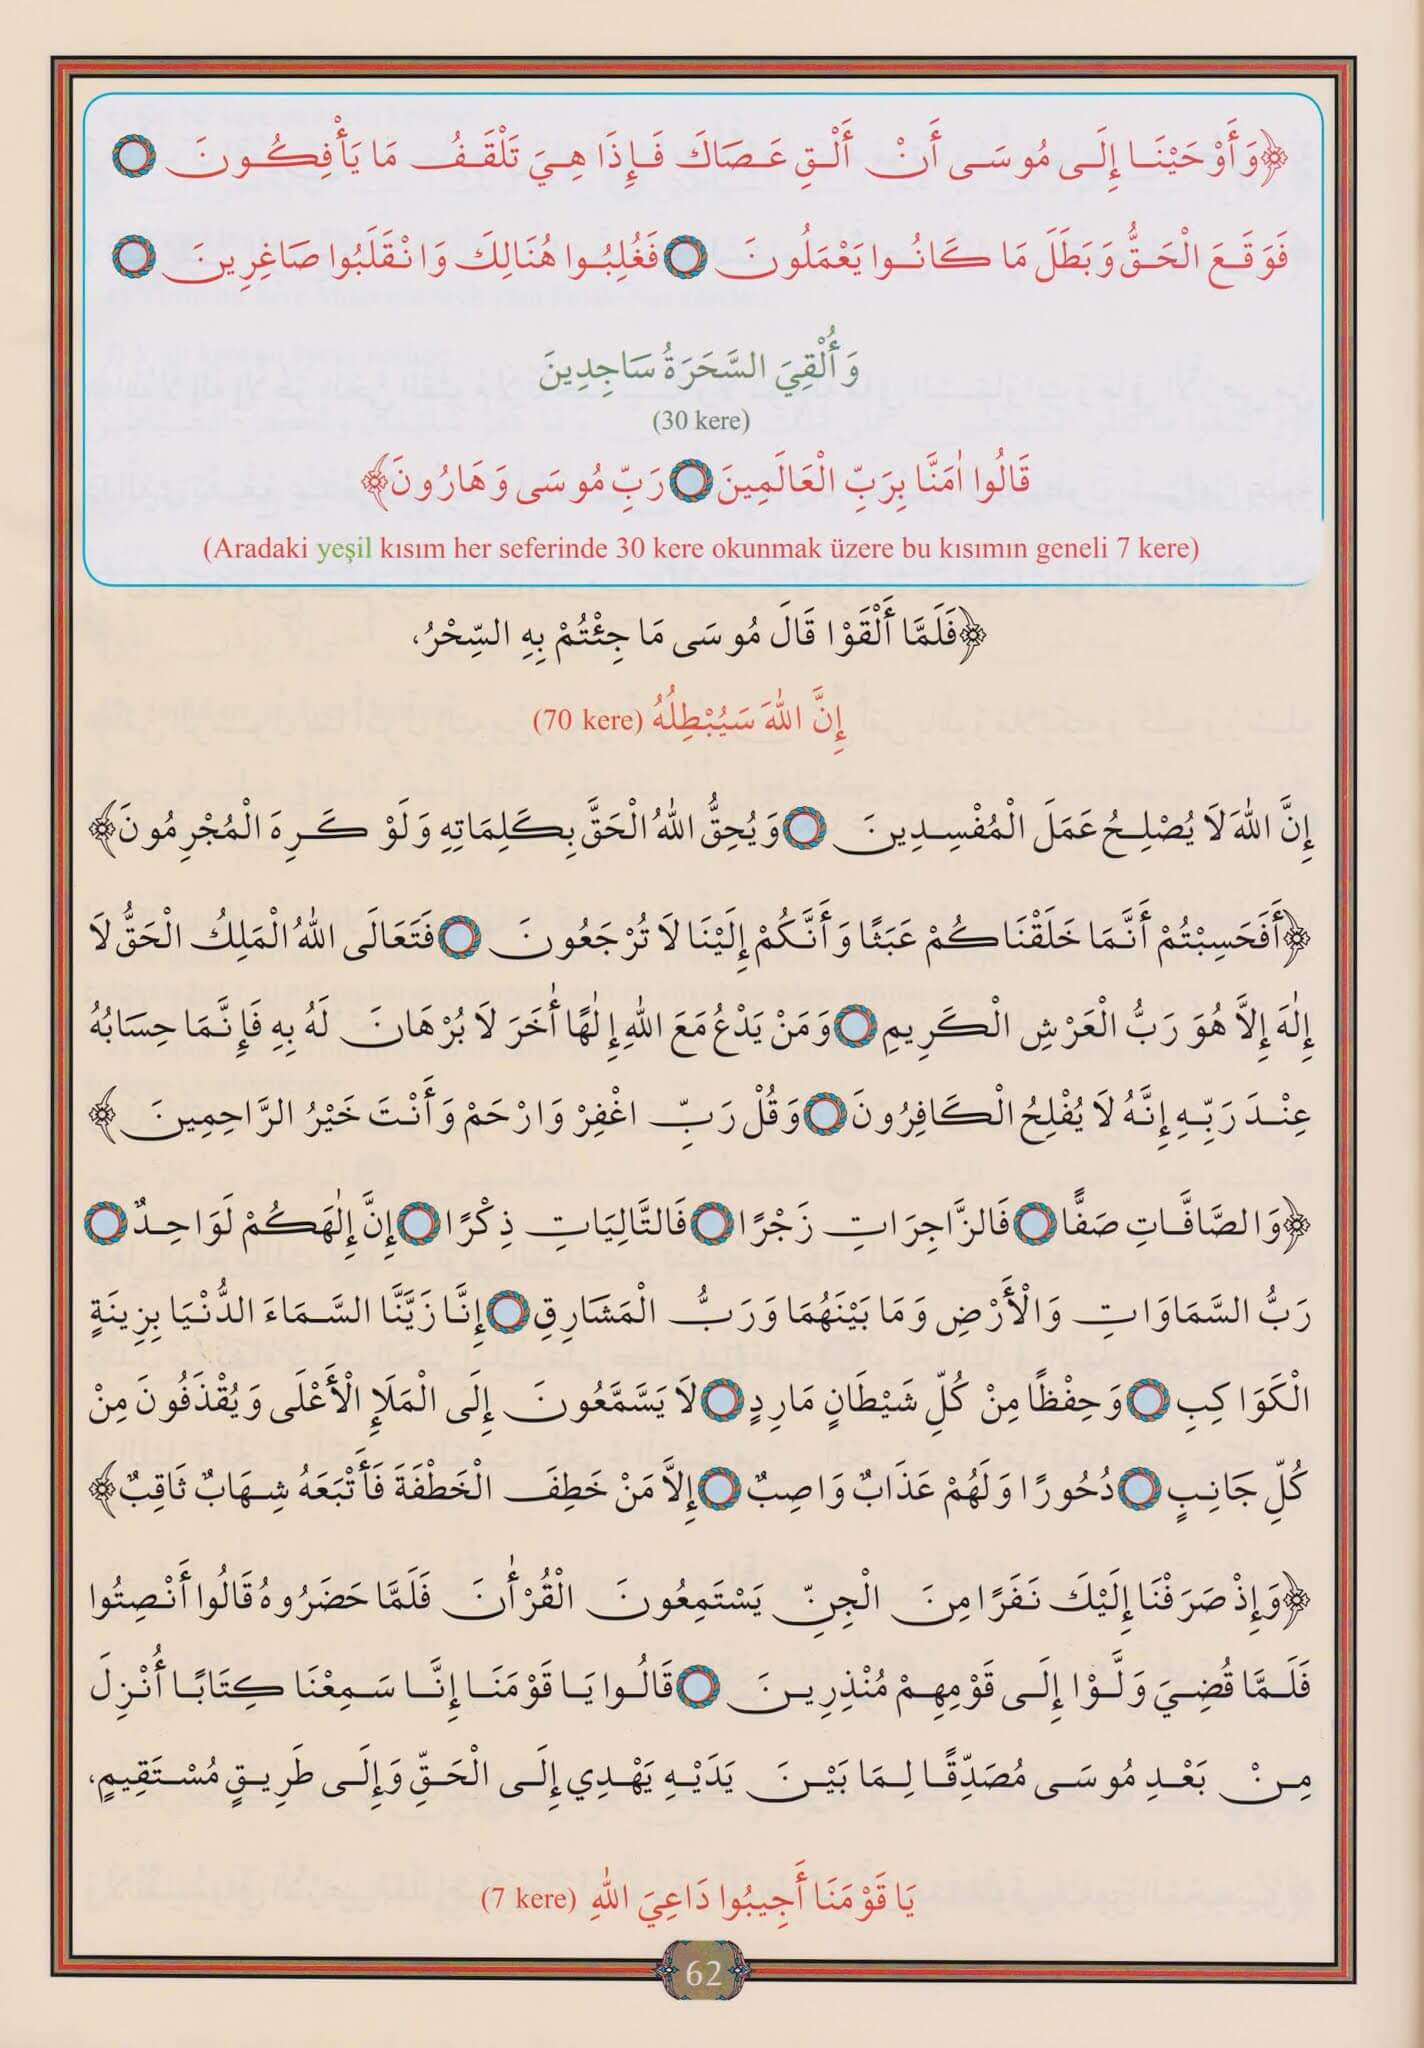 ﴿وَأَوْحَيْنَا إِلَى مُوسَى أَنْ أَلْقِ عَصَاكَ فَإِذَا هِيَ تَلْقَفُ مَا يَأْفِكُونَ
فَوَقَعَ الْحَقُّ وَبَطَلَ مَا كَانُوا يَعْمَلُونَ فَغُلِبُوا هُنَالِكَ وَانْقَلَبُوا صَاغِرِينَ
وَأُلْقِيَ السَّحَرَةُ سَاجِدِينَ
(30 kere)
قَالُوا اٰمَنَّا بِرَبِّ الْعَالَمِينَ رَبِّ مُوسَى وَهَارُونَ﴾
(Aradaki yeşil kısım her seferinde 30 kere okunmak üzere bu kısımın geneli 7 kere)
﴿فَلَمَّا أَلْقَوْا قَالَ مُوسَى مَا جِئْتُمْ بِهِ السِّحْرُ،
إِنَّ اللّٰهَ سَيُبْطِلُهُ (70 kere)
إِنَّ اللّٰهَ لَا يُصْلِحُ عَمَلَ الْمُفْسِدِينَ وَيُحِقُّ اللّٰهُ الْحَقَّ بِكَلِمَاتِهِ وَلَوْ كَرِهَ الْمُجْرِمُونَ﴾
﴿أَفَحَسِبْتُمْ أَنَّمَا خَلَقْنَاكُمْ عَبَثًا وَأَنَّكُمْ إِلَيْنَا لَا تُرْجَعُونَ فَتَعَالَى اللّٰهُ الْمَلِكُ الْحَقُّ لَا
إِلٰهَ إِلَّا هُوَ رَبُّ الْعَرْشِ الْكَرِيمِ وَمَنْ يَدْعُ مَعَ اللّٰهِ إِلٰهًا أٰخَرَ لَا بُرْهَانَ لَهُ بِهِ فَإِنَّمَا حِسَابُهُ
عِنْدَ رَبِّهِ إِنَّهُ لَا يُفْلِحُ الْكَافِرُونَ وَقُلْ رَبِّ اغْفِرْ وَارْحَمْ وَأَنْتَ خَيْرُ الرَّاحِمِينَ﴾
﴿وَالصَّافَّاتِ صَفًّا فَالزَّاجِرَاتِ زَجْرًا فَالتَّالِيَاتِ ذِكْرًا إِنَّ إِلٰهَكُمْ لَوَاحِدٌ
رَبُّ السَّمَاوَاتِ وَالْأَرْضِ وَمَا بَيْنَهُمَا وَرَبُّ الْمَشَارِقِ إِنَّا زَيَّنَّا السَّمَاءَ الدُّنْيَا بِزِينَةٍ
الْكَوَاكِبِ وَحِفْظًا مِنْ كُلِّ شَيْطَانٍ مَارِدٍ لَا يَسَّمَّعُونَ إِلَى الْمَلَإِ الْأَعْلَى وَيُقْذَفُونَ مِنْ
كُلِّ جَانِبٍ دُحُورًا وَلَهُمْ عَذَابٌ وَاصِبٌ إِلَّا مَنْ خَطِفَ الْخَطْفَةَ فَأَتْبَعَهُ شِهَابٌ ثَاقِبٌ﴾
﴿وَإِذْ صَرَفْنَا إِلَيْكَ نَفَرًا مِنَ الْجِنِّ يَسْتَمِعُونَ الْقُرْأٰنَ فَلَمَّا حَضَرُوهُ قَالُوا أَنْصِتُوا
فَلَمَّا قُضِيَ وَلَّوْا إِلَى قَوْمِهِمْ مُنْذِرِينَ قَالُوا يَا قَوْمَنَا إِنَّا سَمِعْنَا كِتَابًا أُنْزِلَ
مِنْ بَعْدِ مُوسَى مُصَدِّقًا لِمَا بَيْنَ يَدَيْهِ يَهْدِي إِلَى الْحَقِّ وَإِلَى طَرِيقٍ مُسْتَقِيمٍ،
يَا قَوْمَنَا أَجِيبُوا دَاعِيَ اللّٰهِ (7 kere)
62